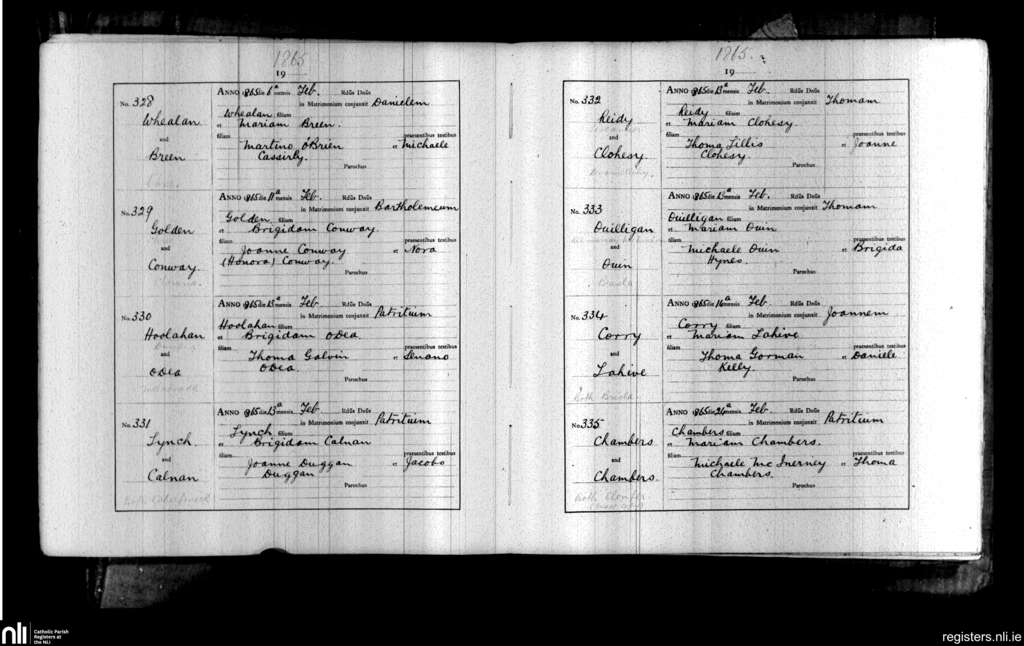 1865
19
No. 328
Whealan
and
Breen
ANNO 1865 die 6a mensis Feb. Rdus Dnus
in Matrimonium conjunxit Danielem
Whealan filium
et Mariam Breen.
filiam praesentibus testibus
Martino O'Brien et Michaele
Cassirly.
Parochus
No. 329
Golden
and
Conway
ANNO 1865 die 11a mensis Feb. Rdus Dnus
in Matrimonium conjunxit Bartholemeum
Golden filium
et Brigidam Conway.
filiam praesentibus testibus
Joanne Conway et Nora
(Honora) Conway.
Parochus
No. 330
Hoolahan
and
ODea
ANNO 1865 die 13a mensis Feb Rdus Dnus
in Matrimonium conjunxit Patritium
Hoolahan filium
et Brigidam ODea
filiam praesentibus testibus
Thoma Galvin et
ODea.
Parochus
No. 331
Lynch.
and
Calnan
ANNO 1865 die 13a mensis Feb. Rdus Dnus
in Matrimonium conjunxit Patritium
Lynch filium
et Brigidam Calnan
filiam praesentibus testibus
Joanne Duggan et Jacobo
Duggan
Parochus
1865.
19
No. 332
Reidy
and
Clohesy.
ANNO 1865 die 13a mensis Feb. Rdus Dnus
in Matrimonium conjunxit Thomam
Reidy filium
et Mariam Clohesy.
filiam praesentibus testibus
Thoma Lillis et Joanne
Clohesy.
Parochus
No. 333
Quilligan
and
Quin
ANNO 1865 die 13a mensis Feb. Rdus Dnus
in Matrimonium conjunxit Thomam
Quilligan filium
et Mariam Quin
filiam praesentibus testibus
Michaele Quin et Brigida
Hynes.
Parochus
No. 334
Corry
and
Lahive
ANNO 1865 die 16a mensis Feb Rdus Dnus
in Matrimonium conjunxit Joannem
Corry filium
et Mariam Lahive.
filiam praesentibus testibus
Thoma Gorman et Daniele
Kelly.
Parochus
No. 335
Chambers
and
Chambers.
ANNO 1865 die 26a mensis Feb. Rdus Dnus
in Matrimonium conjunxit Patritium
Chambers filium
et Mariam Chambers.
filiam praesentibus testibus
Michaele McInerney et Thoma
Chambers.
Parochus
nli Catholic Parish
Registers at
the NLI
registers.nli.ie